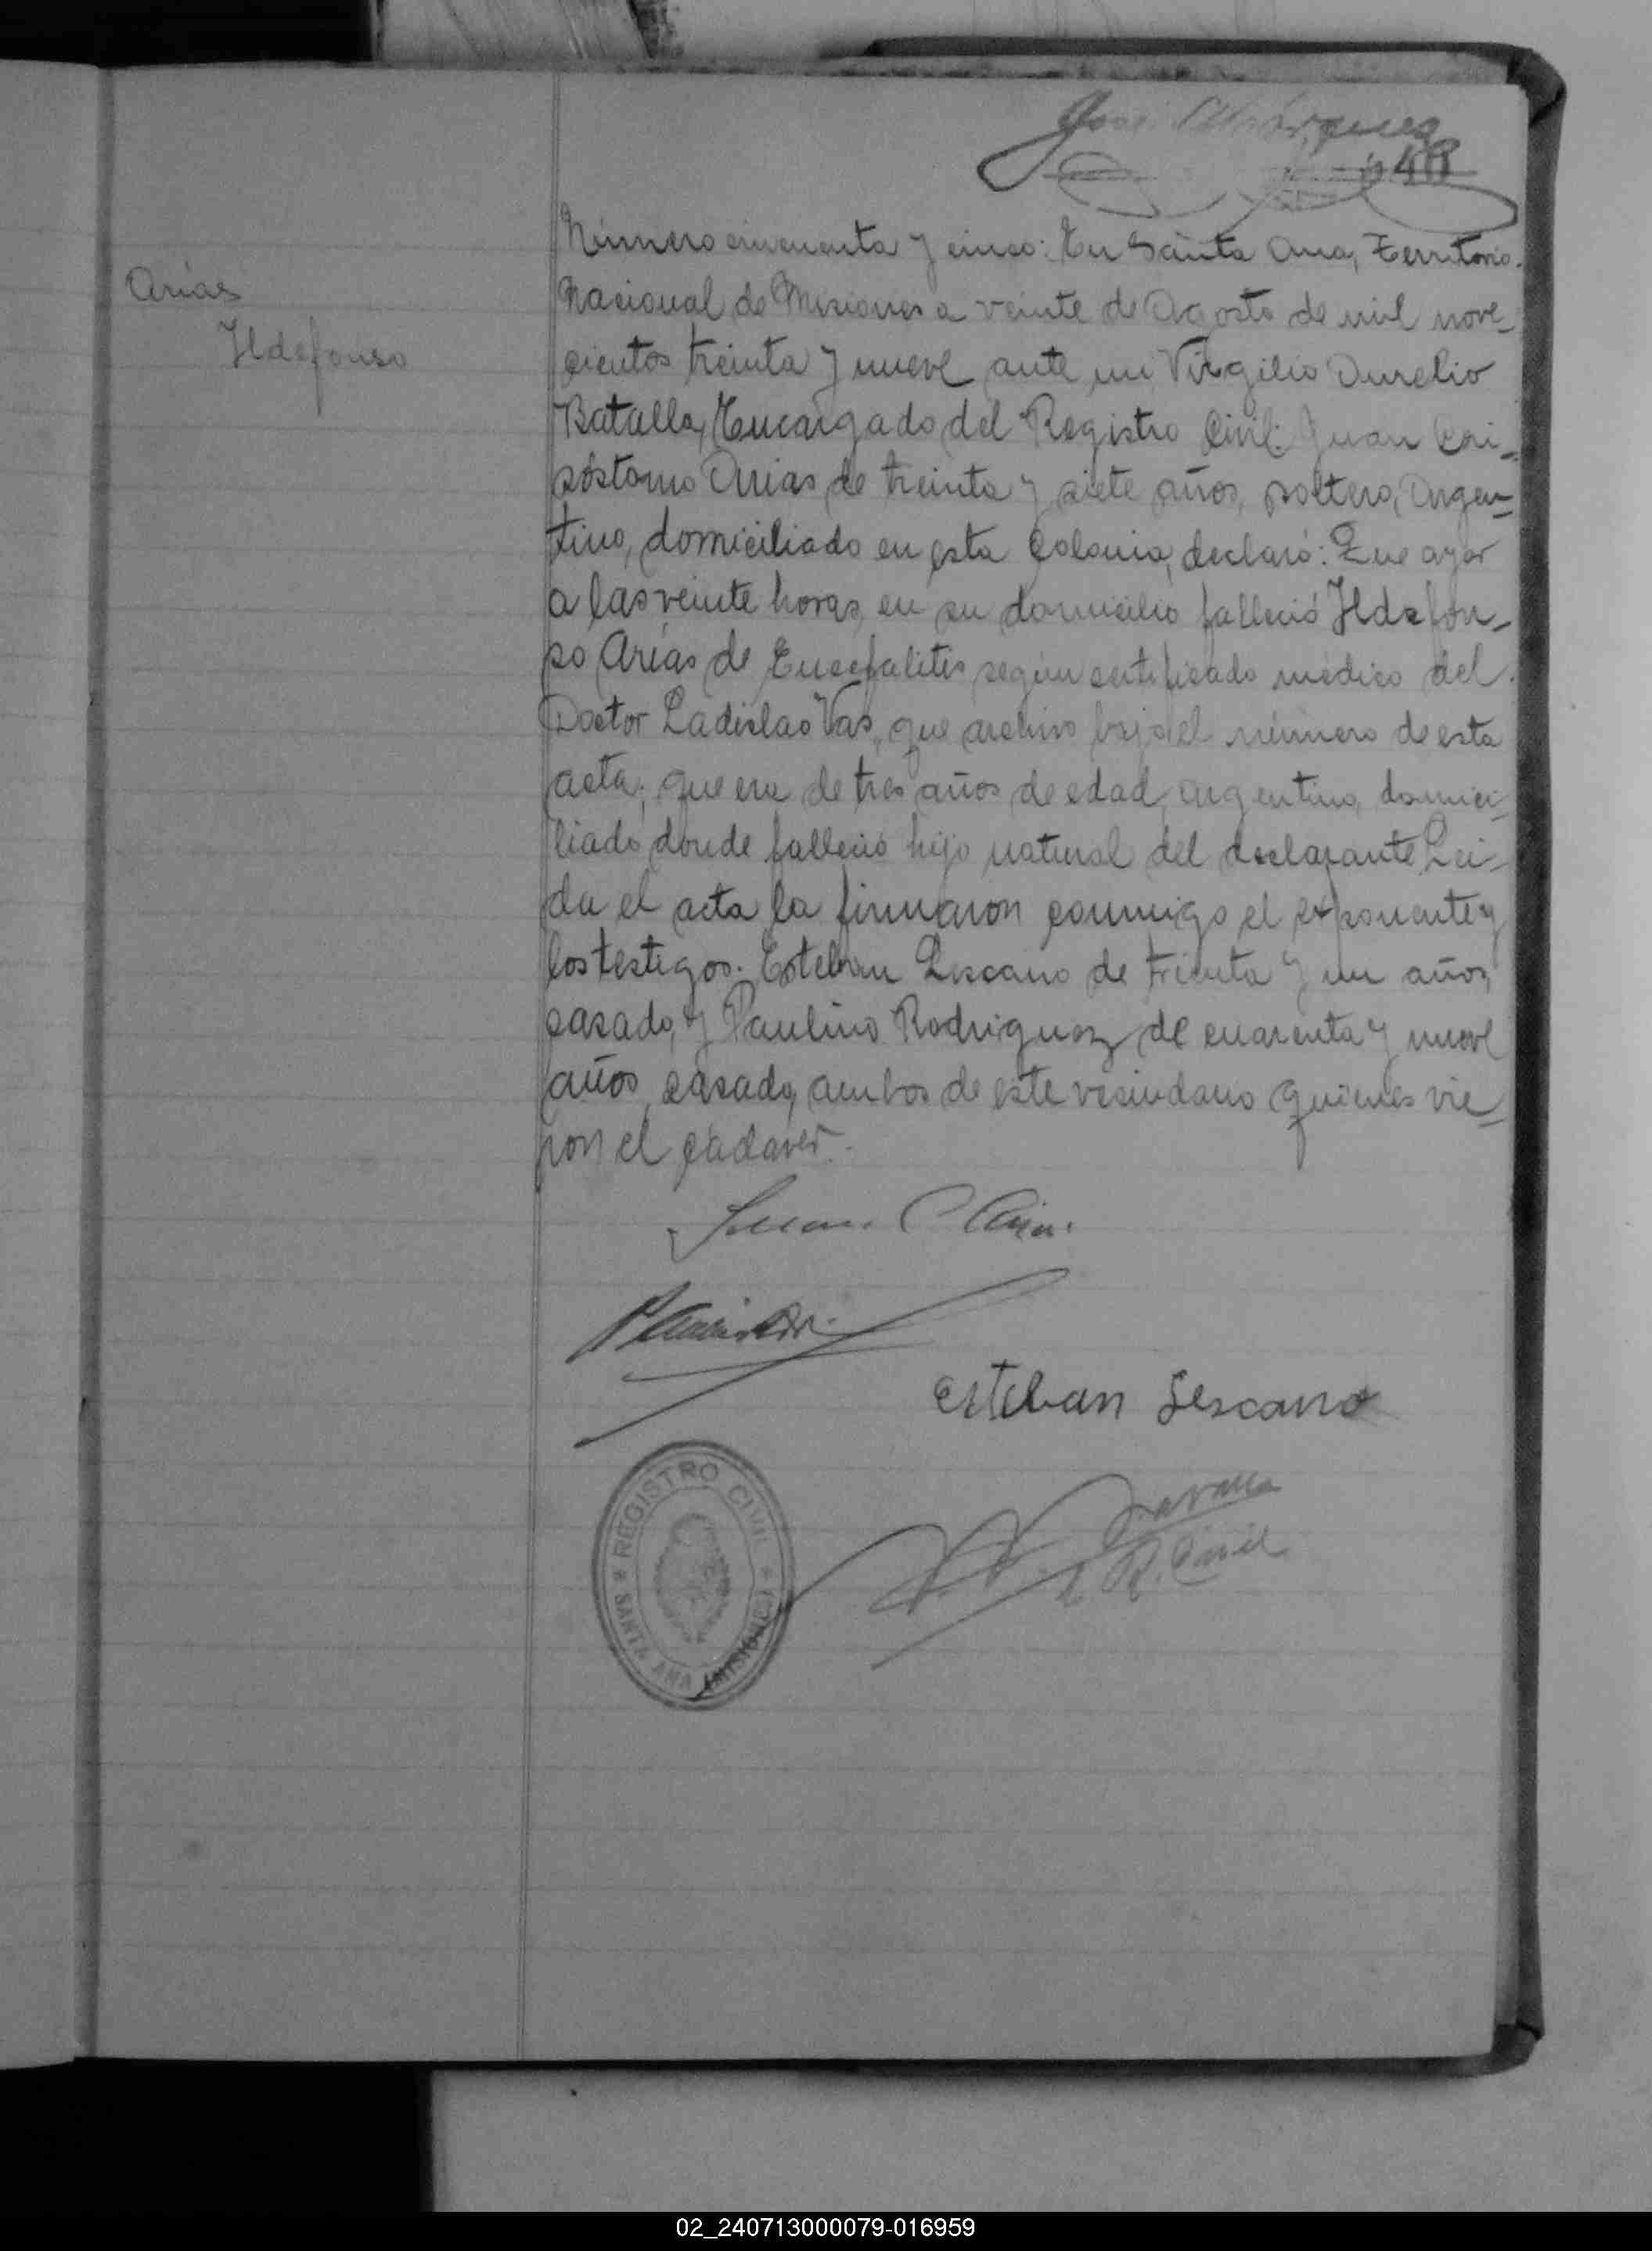 José Márquez
48
Arias
Ildefonso
Número cincuenta y cinco: En Santa Ana, Territorio
Nacional de Misiones a veinte de Agosto de mil nove-
cientos treinta y nueve ante mi Virgilio Aurelio
Batalla, Encargado del Registro Civil: Juan Cri-
sóstomo Arias, de treinta y siete años, soltero, Argen-
tino, domiciliado en esta Colonia, declaró: Que ayer
a las veinte horas, en su domicilio falleció Ildefon-
so Arias de Encefalitis según certificado médico del
Doctor Ladislao Vas, que archivo bajo el número de esta
acta; que era de tres años de edad, argentino, domici-
liado donde falleció hijo natural del declarante. Lei-
da el acta la firmaron conmigo el exponente y
los testigos: Esteban Lescano de trienta y un años,
casado, y Paulino Rodriguez de cuarenta y nueve
años, casado, ambos de este vecindario quienes vie-
ron el cadáver.-
Juan C Arias
Esteban Lescano
Batalla
E. R. Civil
REGISTRO CIVIL
SANTA ANA (MISIONES)
02_240713000079-016959